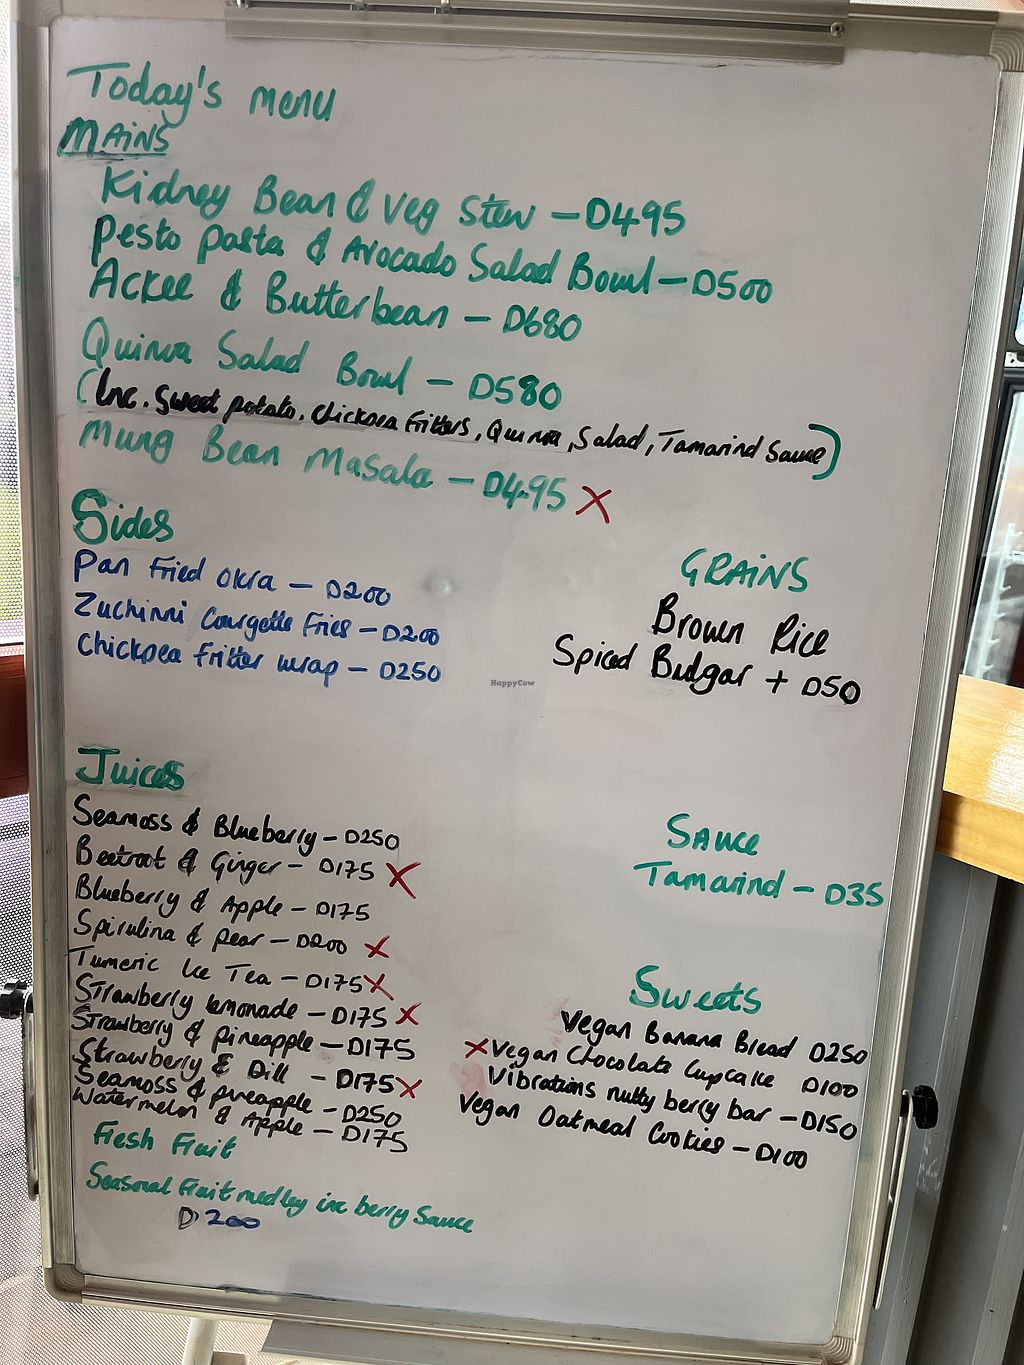 Today's menu
MAINS
Kidney Bean & Veg Stew - D495
Pesto Pasta & Avocado Salad Bowl - D500
Ackee & Butterbean - D680
Quinoa Salad Bowl - D580
(Inc. Sweet potato. Chickpea Fritters, Quinoa, Salad, Tamarind Sauce)
Mung Bean Masala - D495 X
Sides
Pan Fried Okra - D200
Zuchinni Courgette Fries - D200
Chickpea Fritter wrap - D250
GRAINS
Brown Rice
Spiced Bulgar + D50
HappyCow
Juices
Seamoss & Blueberry - D250
Beetroot & Ginger - D175 X
Blueberry & Apple - D175
Spirulina & pear - D200 X
Tumeric Ice Tea - D175 X
Strawberry lemonade - D175 X
Strawberry & pineapple - D175
Strawberry & Dill - D175 X
Seamoss & pineapple - D250
Watermelon & Apple - D175
Sauce
Tamarind - D35
Sweets
Vegan Banana Bread D250
X Vegan Chocolate Cupcake D100
Vibrations nutty berry bar - D150
Vegan Oatmeal Cookies - D100
Fresh Fruit
Seasonal Fruit medley inc berry Sauce
D200